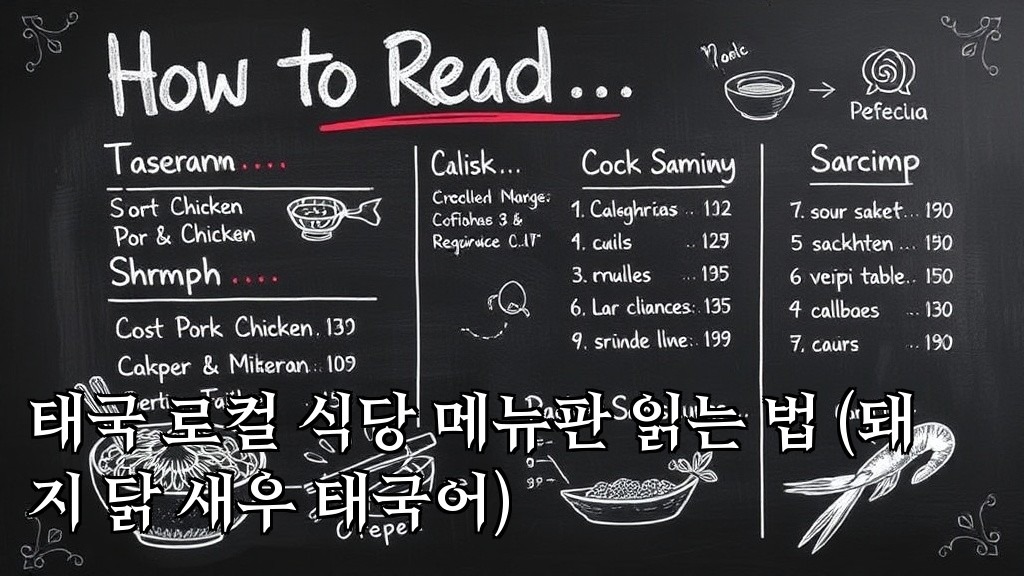 How to Read...
Noolc
Pefecıua
Taserann....
Sort Chicken
Por & Chicken
Shrmph....
Cost Pork Chicken. 139
Cakper & Mikeran.. 109
Calisk...
Crcclied Narge:
Cofiahas 3 &
Cock Saminy
1. Caleghrias .. 132
4. cuils .. 129
3. mulles ... 195
6. Lar cliances:. 135
9. srinde llne:. 199
Sarcimp
7. sour saket... 190
5 sackhten ... 190
6 veipi table.. 150
4 callboes ... 130
7. caurs .. 190
태국 로컬 식당 메뉴판 읽는 법 (돼
지 닭 새우 태국어)